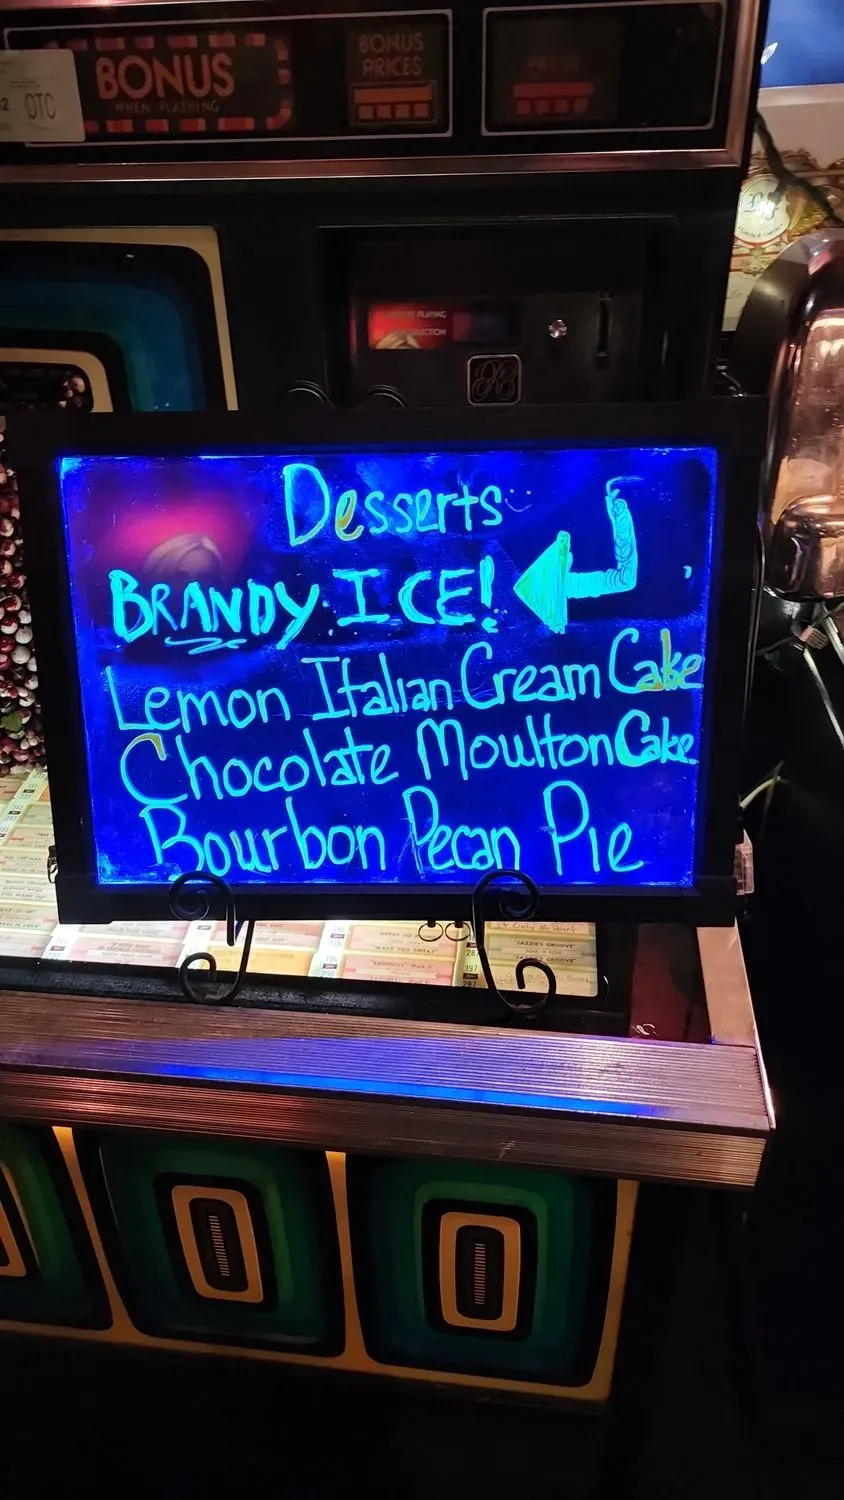 BONUS
WHEN FLASHING
BONUS
PRICES
OTC
Desserts
BRANDY ICE!
Lemon Italian Cream Cake
Chocolate Moulton Cake
Bourbon Pecan Pie
"MAKE YOU SWEAT"
Only My Heart
"JAZZIE'S GROOVE"
197
297